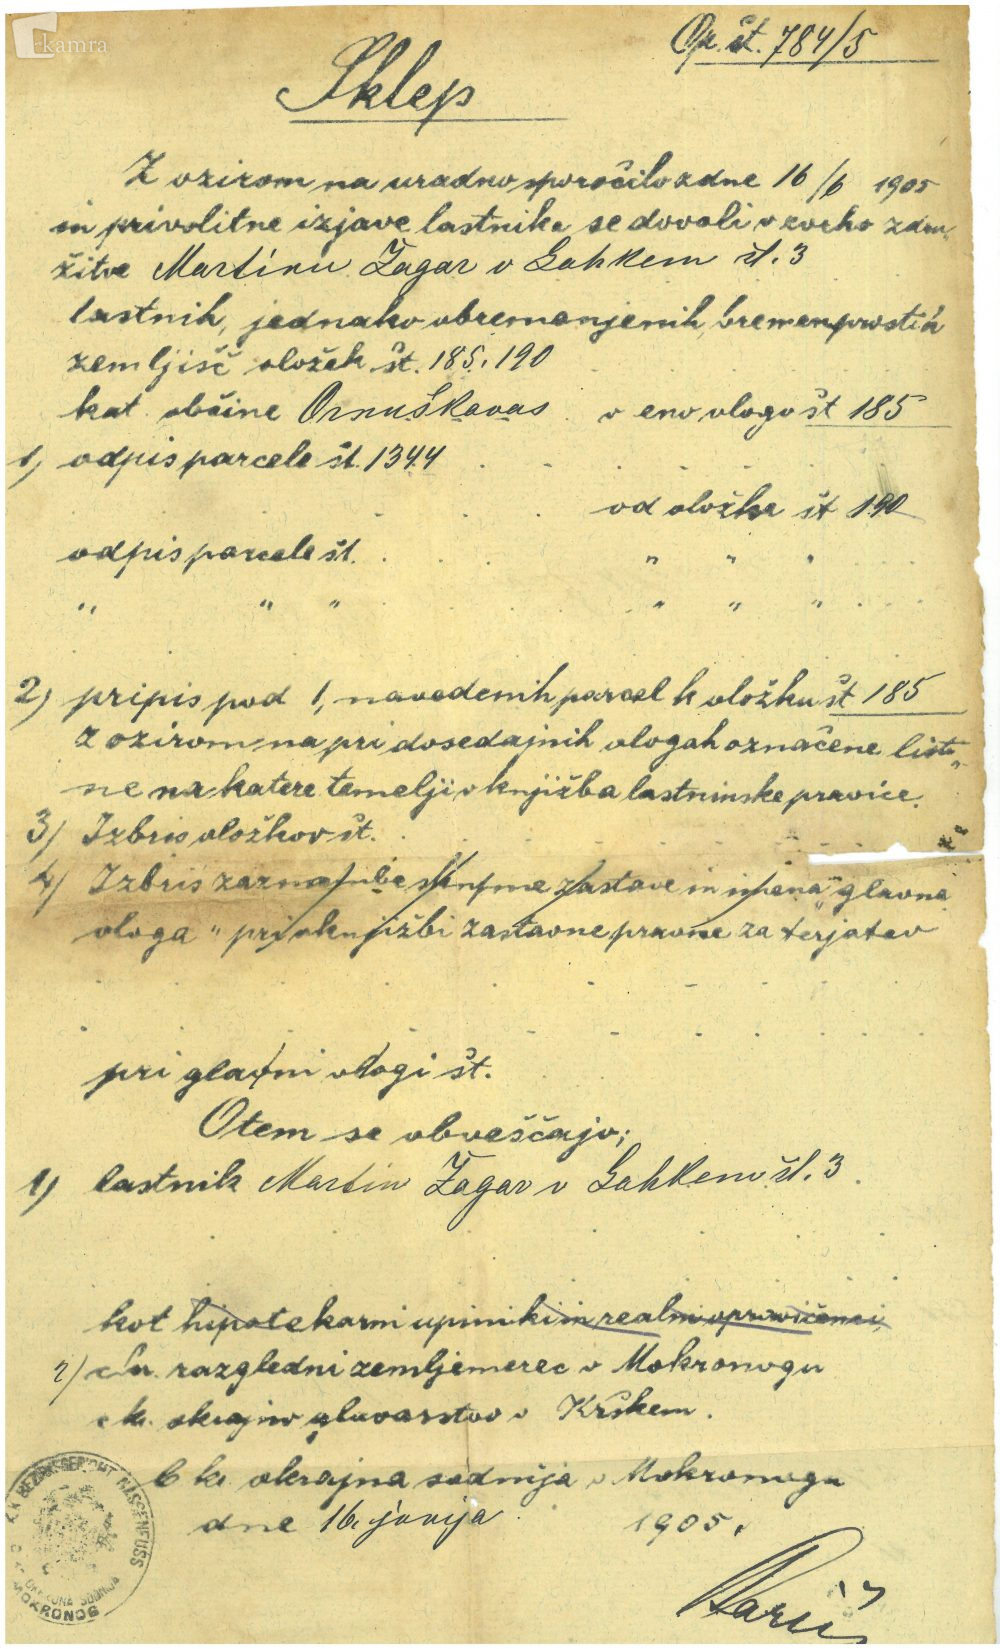 kamra
Op. št. 784/5
Sklep
Z ozirom na uradno sporočilo z dne 16/6 1905
in privolitne izjave lastnika se dovoli v svrho zdru-
žitve Martinu Žagar v Gabkem št. 3
lastnih, jednako obremenjenih, bremen prostih
zemljišč vložek št. 185, 190
kat. občine Ornuškavas v eno vlogo št 185
1) odpis parcele št. 1344
od vložka št 190
odpis parcele št.
" " " " " "
2) pripis pod 1, navedenih parcel k vložku št 185
z ozirom na pri dosedajnih vlogah označene listi-
ne na katere temelji vknjižba lastninske pravice.
3) Izbris vložkov št.
4) Izbris zaznambe skupne zastave in imena "glavna
vloga" pri vknjižbi zastavne pravne za terjatev
pri glavni vlogi št.
O tem se obveščajo;
1) lastnik Martin Žagar v Gabkem št. 3.
kot hipotekarni upiniki in realni upravičenci
2) c. kr. razgledni zemljemerec v Mokronogu
c. k. okrajno glavarstvo v Krškem.
C. kr. okrajna sodnija v Mokronogu
dne 16. junija 1905.
K.K. BEZIRKSGERICHT NASSENFUSS
OKRAJNA SODNIJA
MOKRONOG